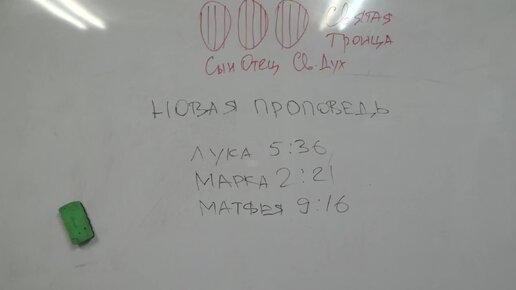 Святая
Троица
Сын Отец Св. Дух
НОВАЯ ПРОПОВЕДЬ
ЛУКА 5:36
МАРКА 2:21
МАТФЕЯ 9:16